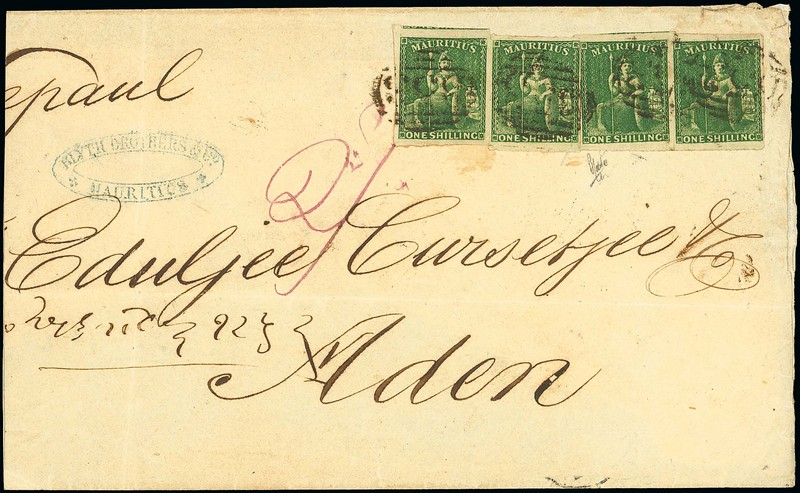 MAURITIUS MAURITIUS MAURITIUS MAURITIUS
ONE SHILLING ONE SHILLING ONE SHILLING ONE SHILLING
epaul
BLYTH BROTHERS & Co
MAURITIUS
2/
Eduljee Cursetjee &
Aden